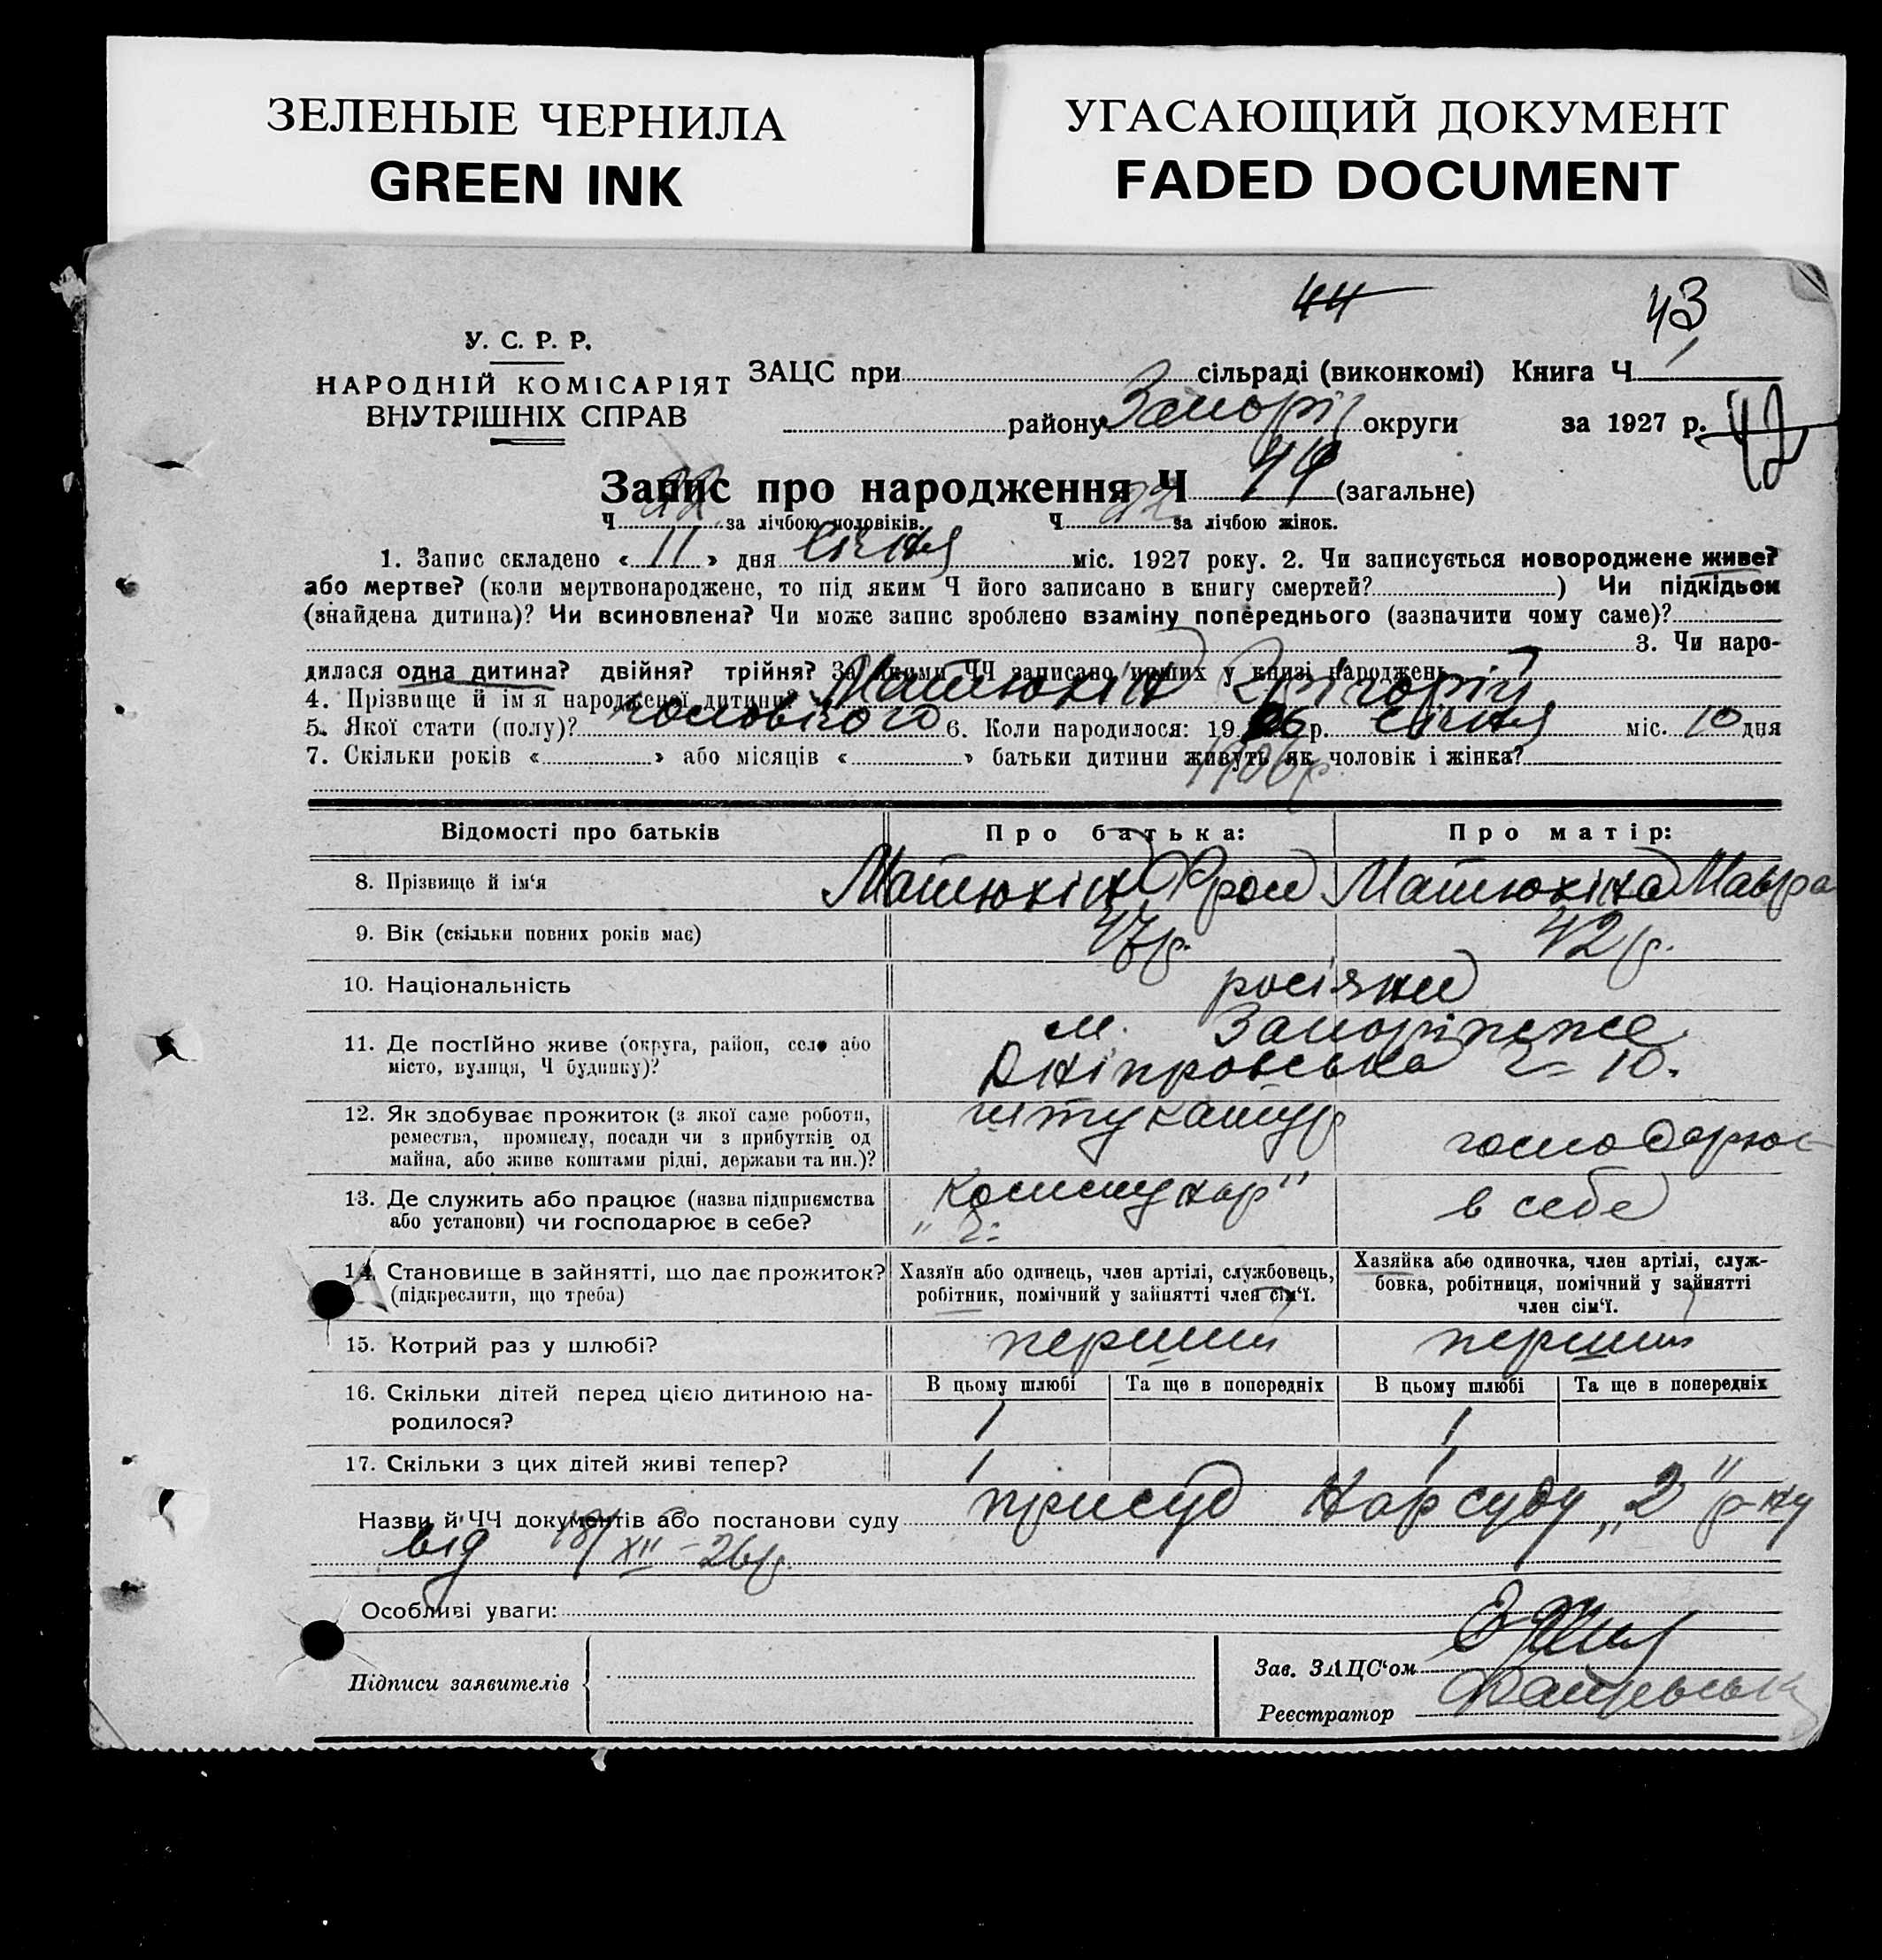 ЗЕЛЕНЫЕ ЧЕРНИЛА
GREEN INK
УГАСАЮЩИЙ ДОКУМЕНТ
FADED DOCUMENT
44 43
У. С. Р. Р.
НАРОДНІЙ КОМІСАРІЯТ
ВНУТРІШНІХ СПРАВ
ЗАЦС при сільраді (виконкомі) Книга Ч 1
району Запоріз округи за 1927 р. 42
Запис про народження Ч 44 (загальне)
Ч 22 за лічбою чоловіків. Ч 22 за лічбою жінок.
1. Запис складено « 11 » дня Січня міс. 1927 року. 2. Чи записується новороджене живе?
або мертве? (коли мертвонароджене, то під яким Ч його записано в книгу смертей? ) Чи підкідьок
(знайдена дитина)? Чи всиновлена? Чи може запис зроблено взаміну попереднього (зазначити чому саме)?
3. Чи наро-
дилася одна дитина? двійня? трійня? За якими ЧЧ записано инших у книзі народжень
4. Прізвище й ім'я народженої дитини? Матюхін Григорій
5. Якої стати (полу)? чоловічого 6. Коли народилося: 1906 р. січня міс. 10 дня
7. Скільки років « » або місяців « » батьки дитини живуть як чоловік і жінка?
1906 р.
Відомості про батьків Про батька: Про матір:
8. Прізвище й ім'я Матюхін Фрол Матюхіна Мавра
9. Вік (скільки повних років має) 47 р. 42 р.
10. Національність росіяни
11. Де постійно живе (округа, район, село або місто, вулиця, Ч будинку)? м. Запоріжжє
Дніпровська 10.
12. Як здобуває прожиток (з якої саме роботи, ремества, промислу, посади чи з прибутків од майна, або живе коштами рідні, держави та ин.)? штукатур господарює
13. Де служить або працює (назва підприємства або установи) чи господарює в себе? "Коммунар" в себе
14. Становище в зайнятті, що дає прожиток? (підкреслити, що треба)
Хазяїн або одинець, член артілі, службовець, робітник, помічний у зайнятті член сім'ї.
Хазяйка або одиночка, член артілі, служ-
бовка, робітниця, помічний у зайнятті
член сім'ї.
15. Котрий раз у шлюбі? перший перший
16. Скільки дітей перед цією дитиною на-
родилося?
В цьому шлюбі Та ще в попередніх В цьому шлюбі Та ще в попередніх
1 1
17. Скільки з цих дітей живі тепер? 1 1
Назви й ЧЧ документів або постанови суду присуд Нарсуду "2" р-ну
від 18/XII-26 р.
Особливі уваги:
Підписи заявителів
Зав. ЗАЦС'ом
Реєстратор